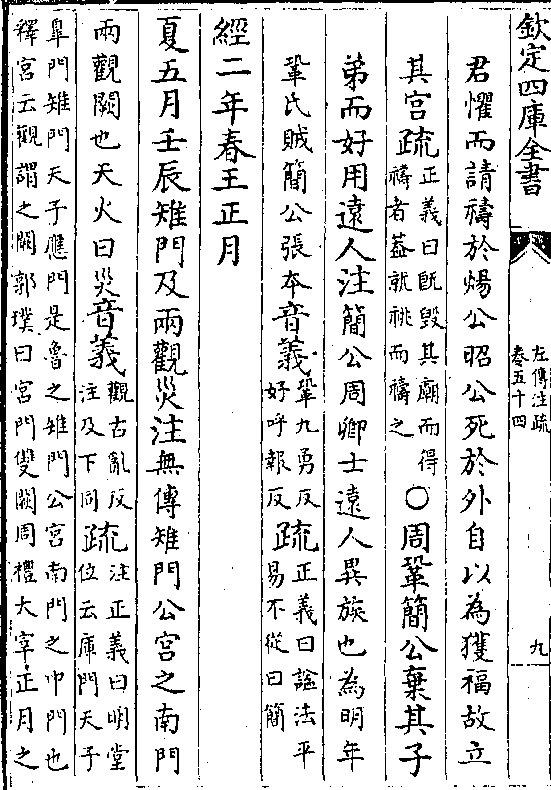 欽定四庫全書
左傳注疏
卷五十四
九
君懼而請禱於煬公昭公死於外自以為獲福故立
其宫疏正義曰既毀其廟而得
禱者蓋就祧而禱之
〇周鞏簡公棄其子
弟而好用遠人注簡公周卿士遠人異族也為明年
鞏氏賊簡公張本音義鞏九勇反
好呼報反
疏正義曰諡法平
易不從曰簡
經二年春王正月
夏五月壬辰雉門及兩觀災注無傳雉門公宫之南門
兩觀闕也天火曰災音義觀古亂反
注及下同
疏注正義曰明堂
位云庫門天子
臯門雉門天子應門是魯之雉門公宫南門之中門也
釋宫云觀謂之闕郭璞曰宫門雙闕周禮大宰正月之